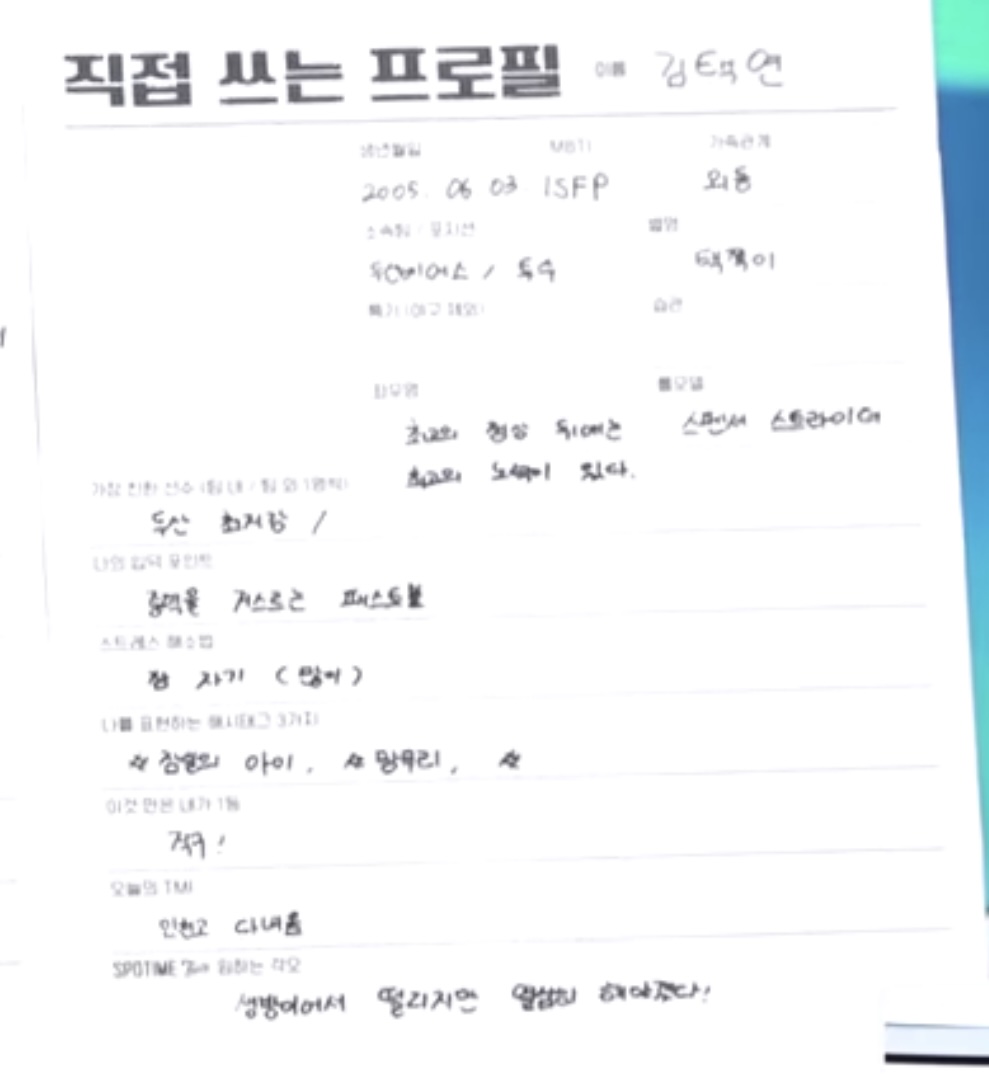 직접 쓰는 프로필 이름 김택연
생년월일 MBTI 가족관계
2005. 06. 03. ISFP 외동
소속팀 / 포지션 별명
두산베어스 / 투수 택쪽이
특기 (야구 제외) 습관
좌우명 롤모델
최고의 정상 뒤에는 스펜서 스트라이더
최고의 노력이 있다.
가장 친한 선수 (팀 내 / 팀 외 1명씩)
두산 최지강 /
나의 입덕 포인트
중력을 거스르는 패스트볼
스트레스 해소법
잠 자기 (많이)
나를 표현하는 해시태그 3가지
# 잠실의 아이, # 막무리, #
이것 만은 내가 1등
직구!
오늘의 TMI
인천고 다녀옴
SPOTIME 임하는 각오
생방이어서 떨리지만 열심히 해야겠다!